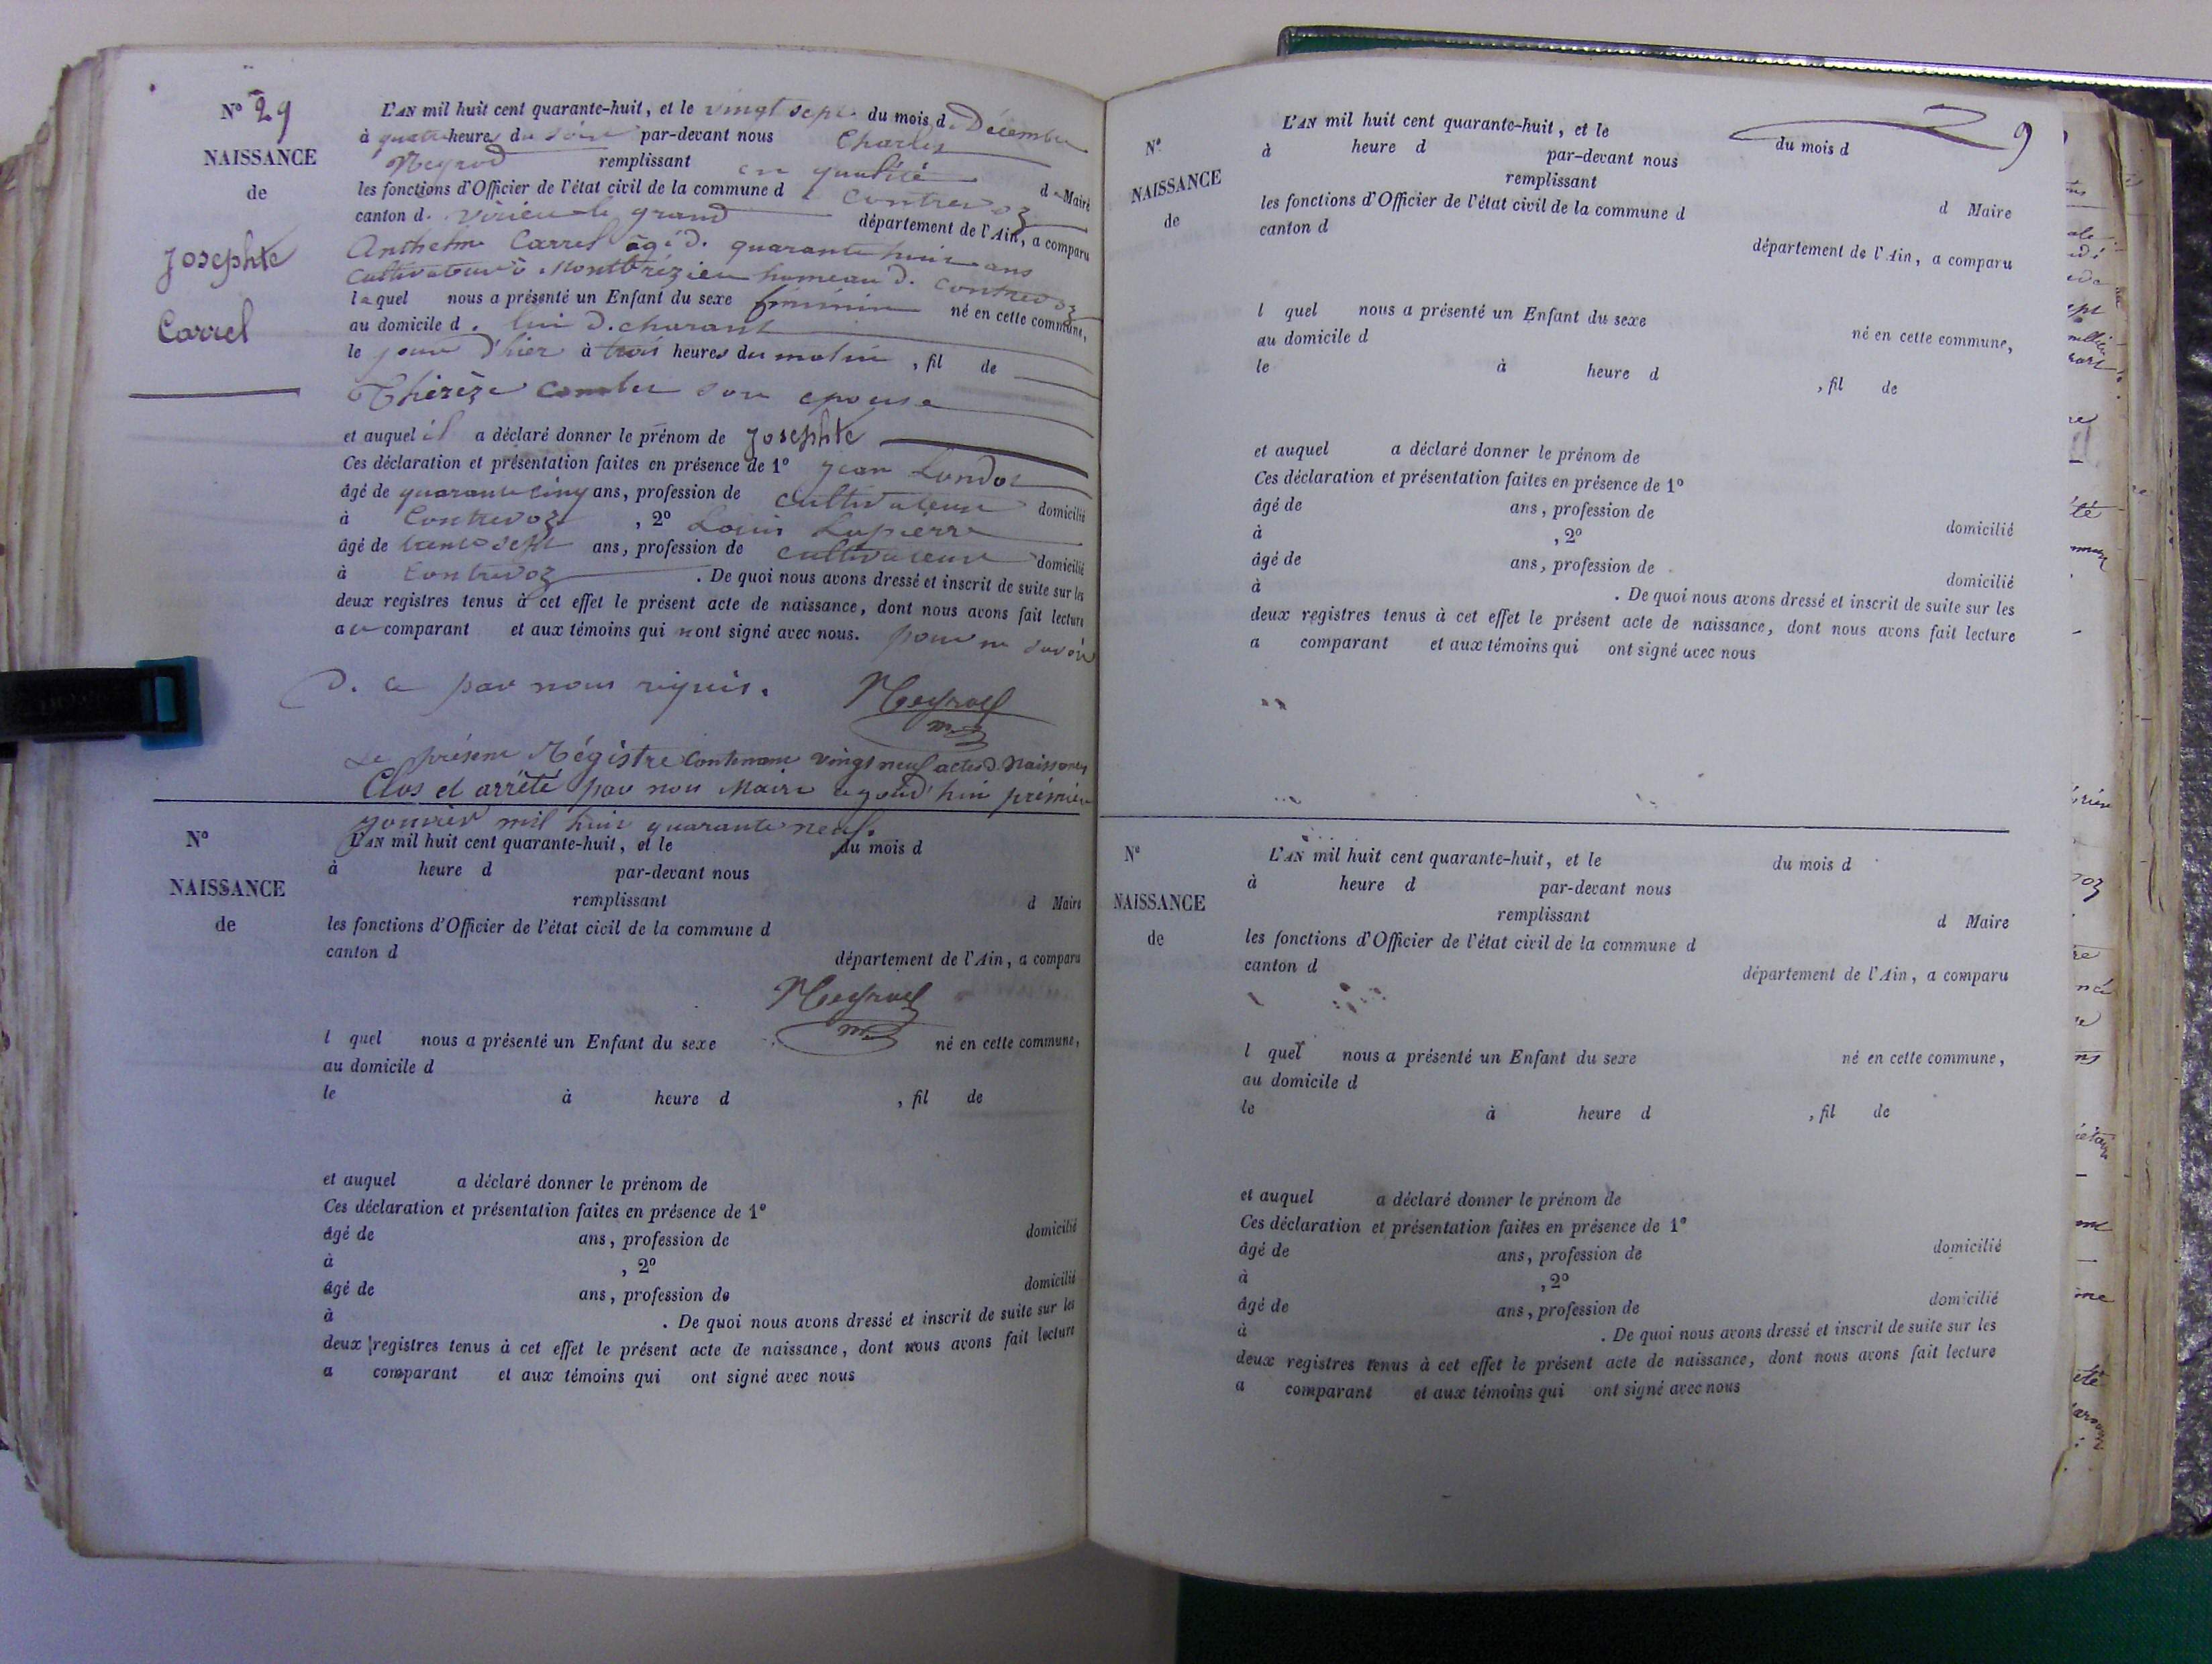 N° 29
NAISSANCE
de
Josephte
Carrel
L'AN mil huit cent quarante-huit, et le vingt sept du mois d. Décembre
à quatre heures du soir par-devant nous Charles
Neyrod remplissant en qualité d. Maire
les fonctions d'Officier de l'état civil de la commune d. Contrevoz
canton d. virieu le grand département de l'Ain, a comparu
Anthelme Carrel âgé d. quarante huit ans
Cultivateur à Montbrézieu hameau d. Contrevoz
lequel nous a présenté un Enfant du sexe féminin né en cette commune,
au domicile d. lui d.
le jour d'hier à trois heures du matin, fil de
Thérèze son epouse
et auquel il a déclaré donner le prénom de Josephte
Ces déclaration et présentation faites en présence de 1° jean
âgé de quarante cinq ans, profession de cultivateur domicilié
à Contrevoz, 2° Louis Lapierre
âgé de trente sept ans, profession de cultivateur domicilié
à Contrevoz. De quoi nous avons dressé et inscrit de suite sur les
deux registres tenus à cet effet le présent acte de naissance, dont nous avons fait lecture
au comparant et aux témoins qui nont signé avec nous. pour ne savoir
d. ce par nous requis.
Neyrod
Le présent Régistre Contenant vingt neuf actes d. Naissances
Clos et arrêté par nous Maire premier
janvier mil huit quarante neuf.
N°
NAISSANCE
de
L'AN mil huit cent quarante-huit, et le du mois d
à heure d par-devant nous
remplissant d Maire
les fonctions d'Officier de l'état civil de la commune d
canton d département de l'Ain, a comparu
Neyrod
l quel nous a présenté un Enfant du sexe né en cette commune,
au domicile d
le à heure d, fil de
et auquel a déclaré donner le prénom de
Ces déclaration et présentation faites en présence de 1°
âgé de ans, profession de domicilié
à, 2°
âgé de ans, profession de domicilié
à. De quoi nous avons dressé et inscrit de suite sur les
deux registres tenus à cet effet le présent acte de naissance, dont nous avons fait lecture
a comparant et aux témoins qui ont signé avec nous
9
N°
NAISSANCE
de
L'AN mil huit cent quarante-huit, et le du mois d
à heure d par-devant nous
remplissant d Maire
les fonctions d'Officier de l'état civil de la commune d
canton d département de l'Ain, a comparu
l quel nous a présenté un Enfant du sexe né en cette commune,
au domicile d
le à heure d, fil de
et auquel a déclaré donner le prénom de
Ces déclaration et présentation faites en présence de 1°
âgé de ans, profession de domicilié
à, 2°
âgé de ans, profession de domicilié
à. De quoi nous avons dressé et inscrit de suite sur les
deux registres tenus à cet effet le présent acte de naissance, dont nous avons fait lecture
a comparant et aux témoins qui ont signé avec nous
N°
NAISSANCE
de
L'AN mil huit cent quarante-huit, et le du mois d
à heure d par-devant nous
remplissant d Maire
les fonctions d'Officier de l'état civil de la commune d
canton d département de l'Ain, a comparu
l quel nous a présenté un Enfant du sexe né en cette commune,
au domicile d
le à heure d, fil de
et auquel a déclaré donner le prénom de
Ces déclaration et présentation faites en présence de 1°
âgé de ans, profession de domicilié
à, 2°
âgé de ans, profession de domicilié
à. De quoi nous avons dressé et inscrit de suite sur les
deux registres tenus à cet effet le présent acte de naissance, dont nous avons fait lecture
a comparant et aux témoins qui ont signé avec nous